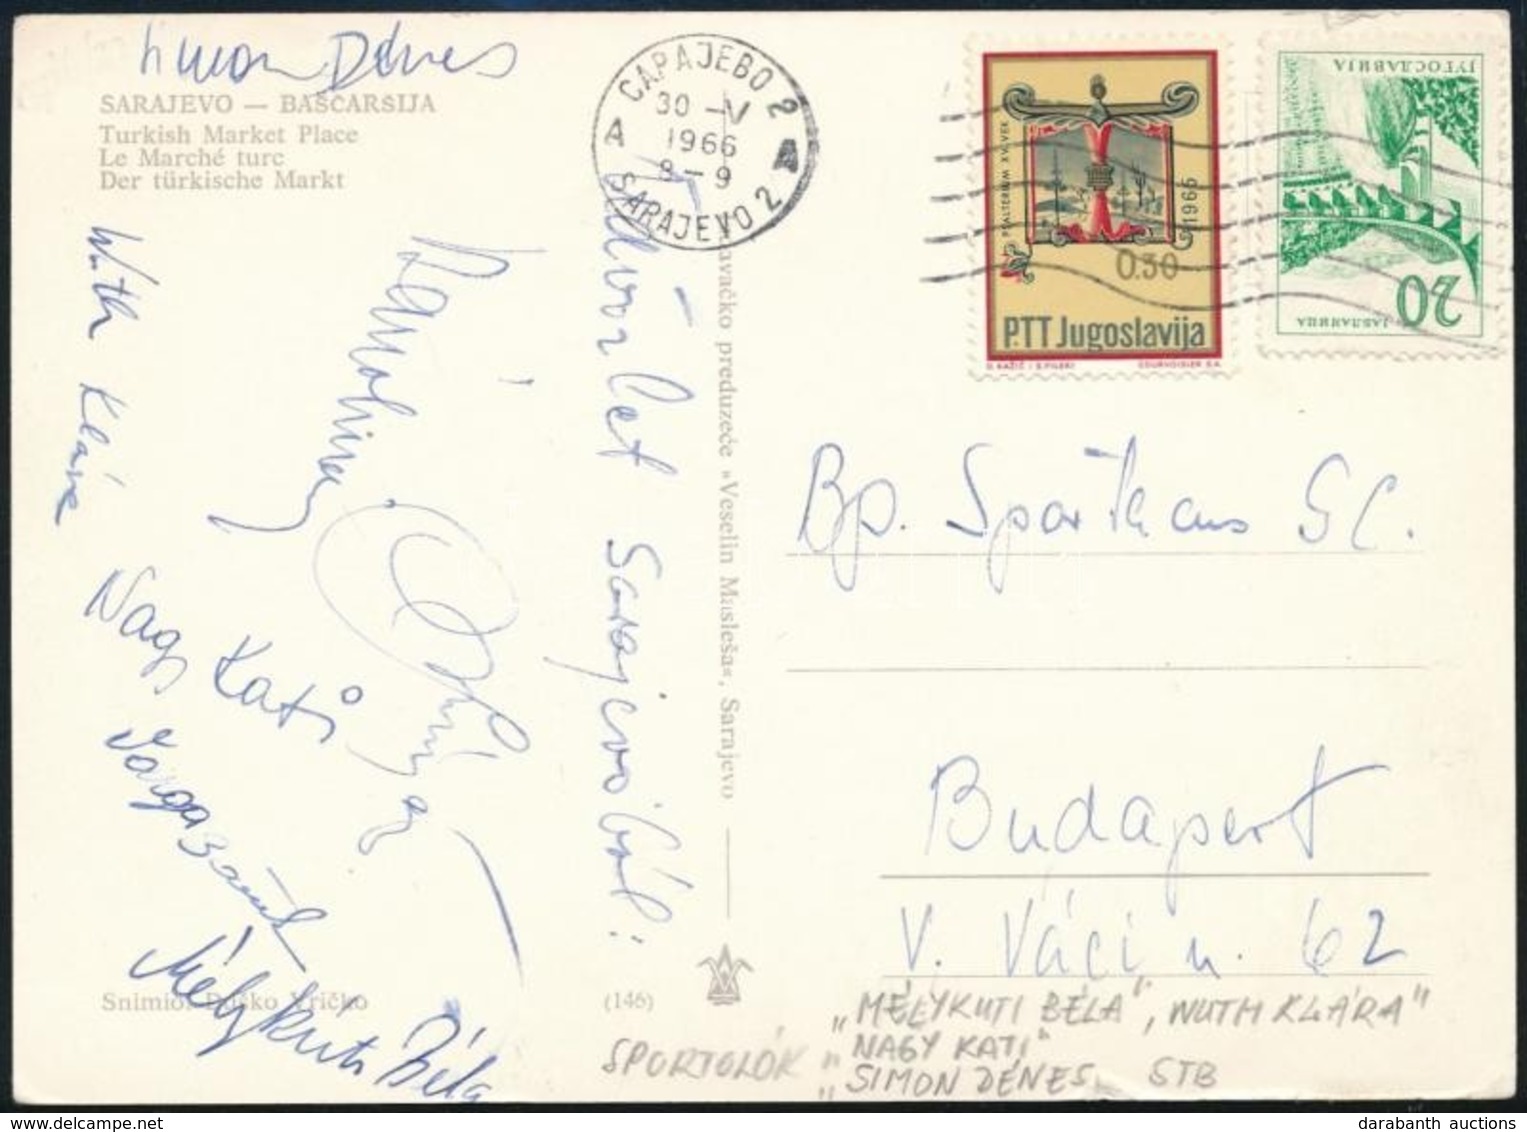 Simon Dénes
SARAJEVO — BAŠČARSIJA
Turkish Market Place
Le Marché turc
Der türkische Markt
Wuth Klára
Nagy Kati
Varga
Mélykuti Béla
Snimio: Duško Vričko
(146)
Üdvözlet Sarajevoból:
avačko preduzeće »Veselin Masleša«, Sarajevo
САРАЈЕВО 2
30 -V
1966
8-9
A
SARAJEVO 2
PSALTERIUM XV. VEK
1966
0.30
P.T.T Jugoslavija
COURVOISIER S.A.
ЈУГОСЛАВИЈА
20
ЈАБЛАНИЦА
Bp. Spartacus SC.
Budapest
V. Váci u. 62
"MÉLYKUTI BÉLA", WUTH KLÁRA"
SPORTOLÓK "NAGY KATI"
"SIMON DÉNES, STB
darabanth auctions